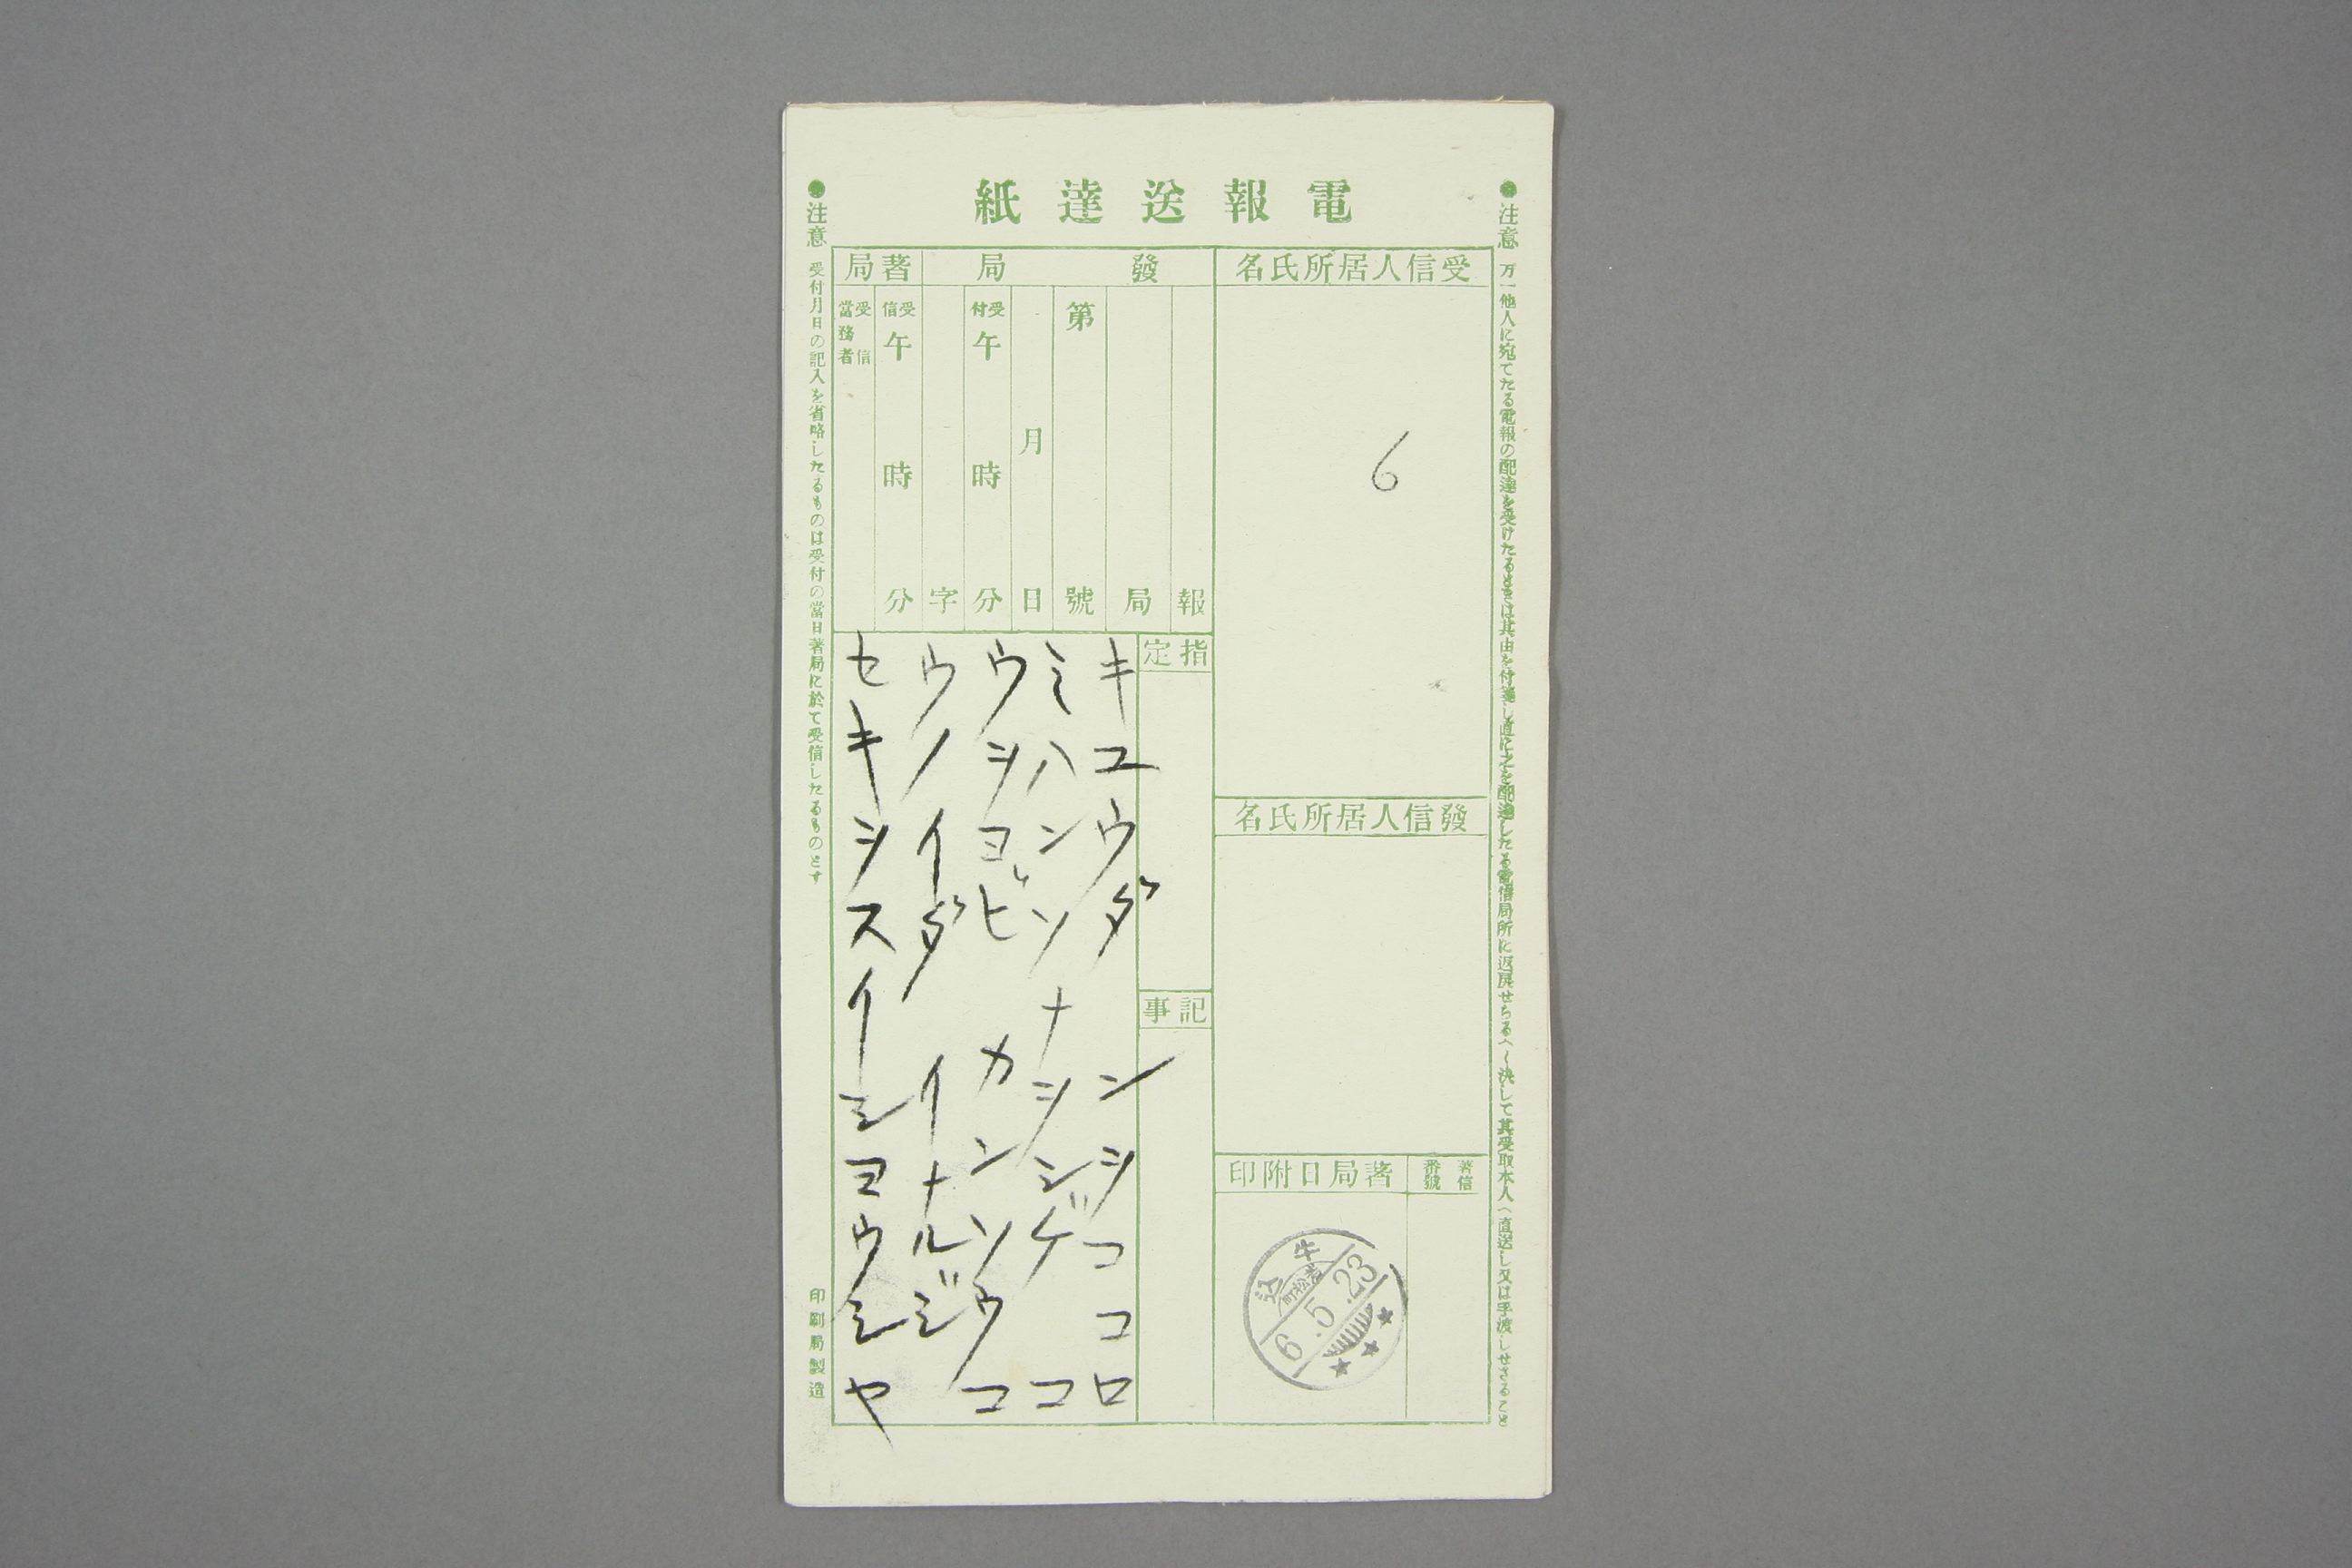 電報送達紙
●注意 万一他人に宛てたる電報の配達を受けたるときは其由を付箋し直に之を配達したる電信局所に返戻せらるへく決して其受取本人へ直送し又は手渡しせさること
受信人居所氏名
6
發信人居所氏名
著信番號
著局日附印
牛込
若松町
6.5.23
發局
著局
報
局
第 號
月 日
受付 午 時 分
字
受信 午 時 分
受信當務者
指定
記事
キユウダンシココロ
ミハンソナシシゲコ
ウシヨビカンソウコ
ウノイダイナルジ
セキシスイシヨウシヤ
●注意 受付月日の記入を省略したるものは受付の當日著局に於て受信したるものとす
印刷局製造